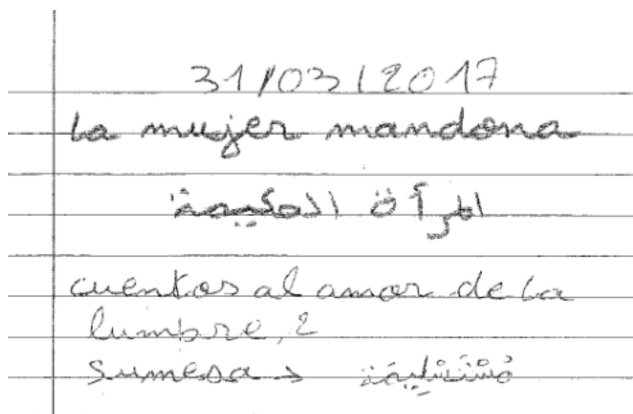 31/03/2017
la mujer mandona
المرآة الحكيمة
cuentos al amor de la
lumbre, 2
sumesa →